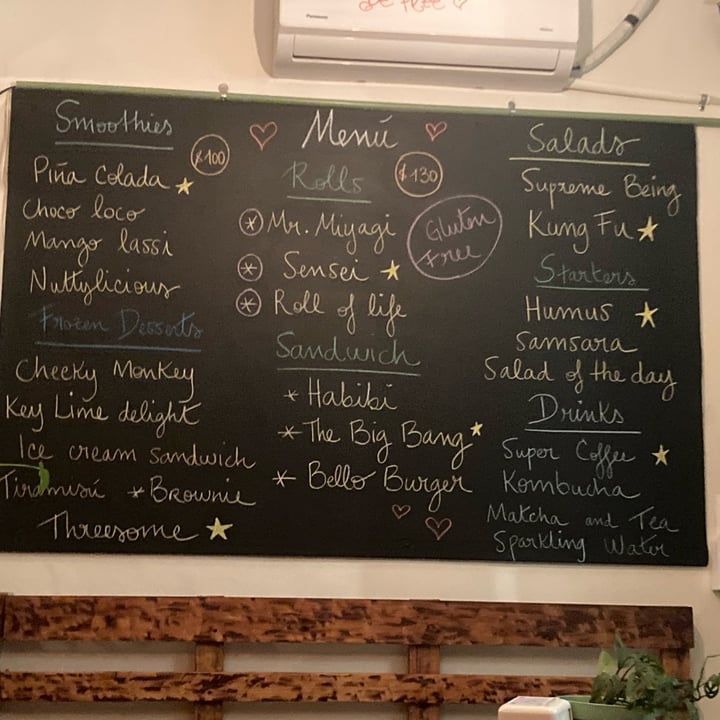 Be free
Panasonic
Smoothies
$100
Piña Colada
Choco loco
Mango lassi
Nuttylicious
Frozen Desserts
Cheeky Monkey
Key Lime delight
Ice cream sandwich
Tiramisú * Brownie
Threesome
Menú
Rolls
$130
* Mr. Miyagi
* Sensei
* Roll of life
Gluten
Free
Sandwich
* Habibi
* The Big Bang
* Bello Burger
Salads
Supreme Being
Kung Fu
Starters
Humus
Samsara
Salad of the day
Drinks
Super Coffee
Kombucha
Matcha and Tea
Sparkling Water